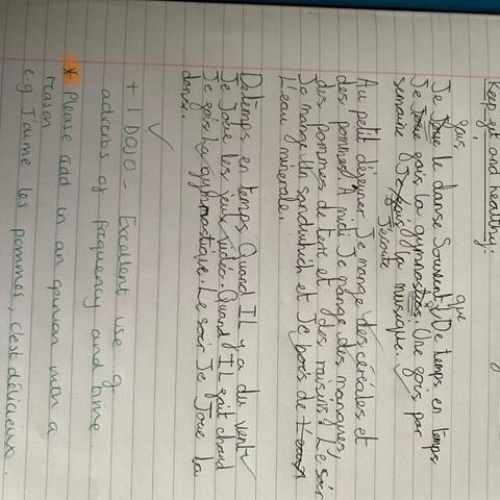 Keep fit and healthy:
fais que
Je Joue le danse Souvent. De temps en temps
Je Joue fais la gymnastics. Une fois par
semaine Je fais J'écoute la musique.
Au petit déjeuner Je mange des céréales et
des pommes. A midi Je mange des mangues,
des pommes de terre et des raisins. Le soir
Je mange Un sandwhich et Je bois de L'eau
L'eau minerale.
De temps en temps Quand IL y a du vent
Je Joue les jeux vidéo. Quand IL fait chaud
Je fais la gymnastique. Le soir Je Joue la
danse.
+ 1 DOJO - Excellent use of
adverbs of frequency and time
* Please add in an opinion then a
reason
e.g J'aime les pommes, c'est délicieux.